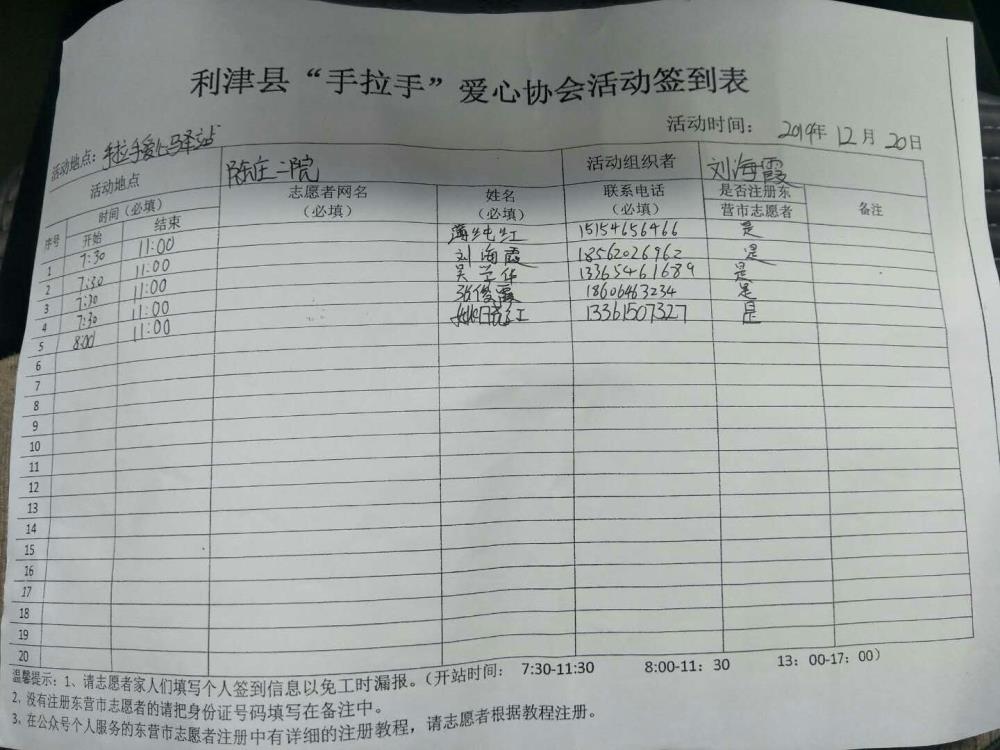 利津县“手拉手”爱心协会活动签到表
活动时间： 2019年 12月 20日
活动地点：手拉手爱心驿站
活动地点 陈庄二院 活动组织者 刘海霞
序号 时间（必填） 志愿者网名（必填） 姓名（必填） 联系电话（必填） 是否注册东营市志愿者 备注
开始 结束
1 7:30 11:00 薄纯红 15154656466 是
2 7:30 11:00 刘海霞 18562026962 是
3 7:30 11:00 吴兰华 13365461689 是
4 7:30 11:00 张俊霞 18606463234 是
5 8:00 11:00 红 13361507327 是
6
7
8
9
10
11
12
13
14
15
16
17
18
19
20
温馨提示：1、请志愿者家人们填写个人签到信息以免工时漏报。（开站时间： 7:30-11:30 8:00-11：30 13：00-17：00）
2、没有注册东营市志愿者的请把身份证号码填写在备注中。
3、在公众号个人服务的东营市志愿者注册中有详细的注册教程，请志愿者根据教程注册。